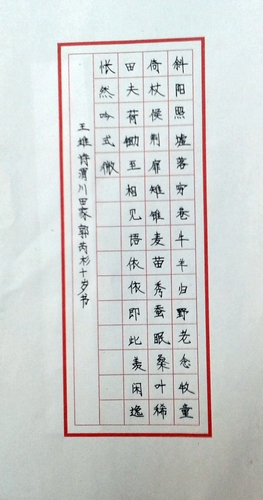 斜阳照墟落穷巷牛羊归野老念牧童
倚杖候荆扉雉雊麦苗秀蚕眠桑叶稀
田夫荷锄至相见语依依即此羡闲逸
怅然吟式微
王维诗渭川田家郭芮杉十岁书